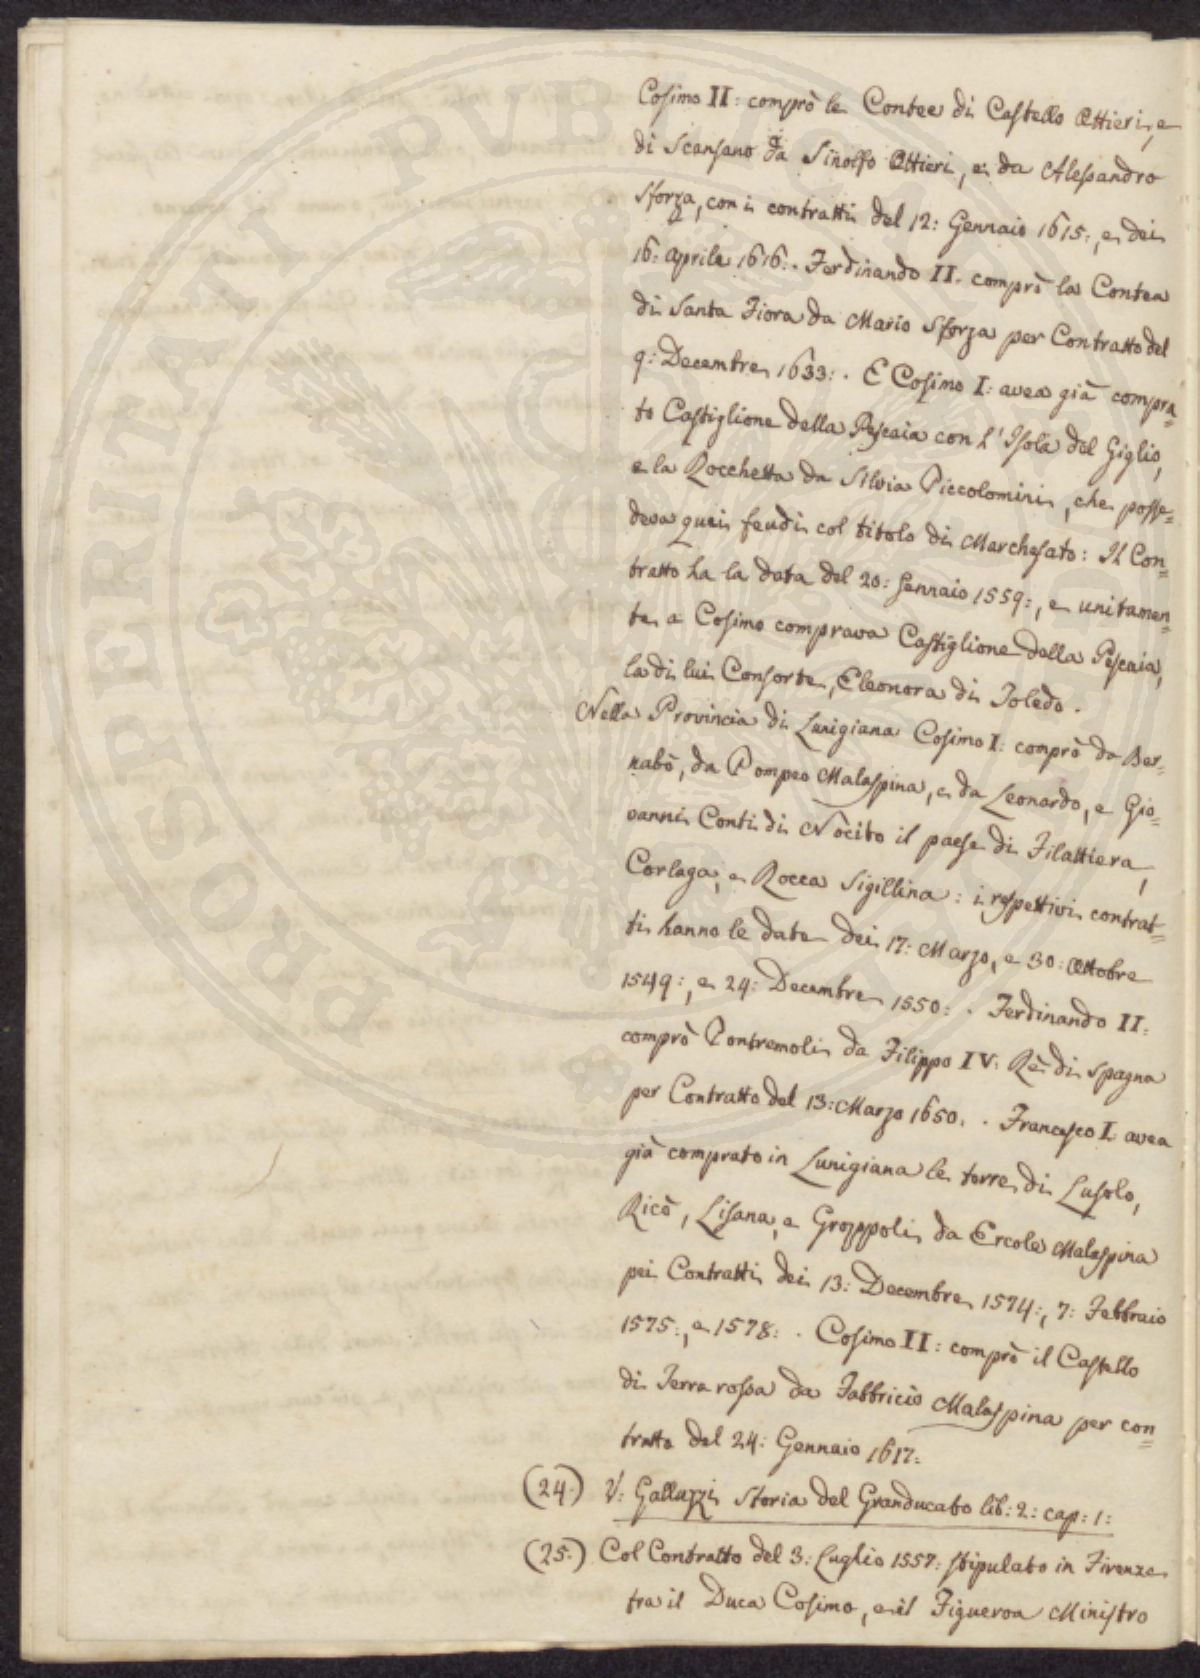 Cosimo II: comprò le Contee di Castello Ottieri, e
di Scansano da Sinolfo Ottieri, e da Alessandro
Sforza, con i contratti del 12: Gennaio 1615:, e dei
16: Aprile 1616: . Ferdinando II. comprò la Contea
di Santa Fiora da Mario Sforza per Contratto del
9: Decembre 1633: . E Cosimo I: avea già compra=
to Castiglione della Pescaia con l'Isola del Giglio,
e la Rocchetta da Silvia Piccolomini, che posse=
deva quei feudi col titolo di Marchesato: Il Con=
tratto ha la data del 20: Gennaio 1559:, e unitamen=
te a Cosimo comprava Castiglione della Pescaia,
la di lui Consorte, Eleonora di Toledo .
Nella Provincia di Lunigiana Cosimo I: comprò da Ber=
nabò, da Pompeo Malaspina, e da Leonardo, e Gio=
vanni Conti di Nocito il paese di Filattiera,
Corlaga, e Rocca Sigillina : i respettivi contrat=
ti hanno le date dei 17: Marzo, e 30: Ottobre
1549:, e 24: Decembre 1550: . Ferdinando II:
comprò Pontremoli da Filippo IV: Rè di Spagna
per Contratto del 13: Marzo 1650: . Francesco I avea
già comprato in Lunigiana le terre di Lusolo,
Ricò, Lisana, e Groppoli da Ercole Malaspina
pei Contratti dei 13: Decembre 1574:, 7: Febbraio
1575:, e 1578: . Cosimo II: comprò il Castello
di Terra rossa da Fabbricio Malaspina per con=
tratto del 24: Gennaio 1617:
(24.) V: Galluzzi Storia del Granducato lib: 2: cap: 1:
(25.) Col Contratto del 3: Luglio 1557: stipulato in Firenze
tra il Duca Cosimo, e il Figueroa Ministro